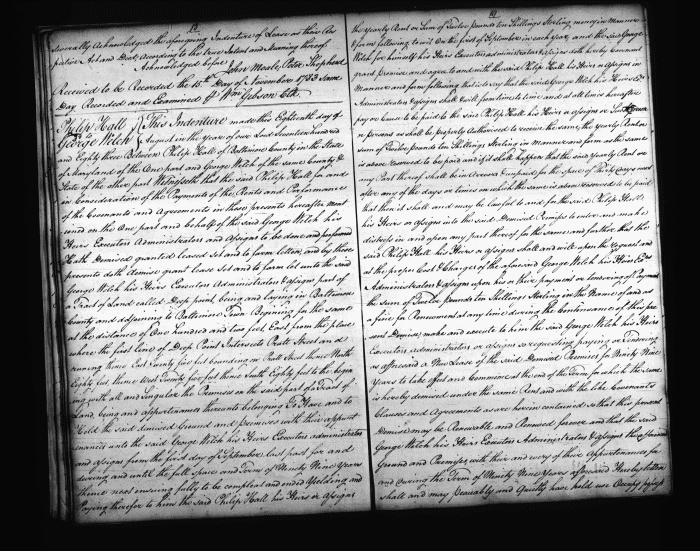 13
severally Acknowledged the aforegoing Indenture of Lease as their Res
pective Act and Deed according to the true Intent and Meaning thereof
Acknowledged before John Moale, Peter Shepherd
Received to be Recorded the 15th Day of November 1783 Same
Day Recorded and Examined Wm Gibson Clk
Philip Hall
to
George Welch
This Indenture made this Eighteenth day of
August in the year of our Lord Seventeen hundred
and Eighty three Between Philip Hall of Baltimore County in the State
of Maryland of the One part and George Welch of the same County &
State of the other part Witnesseth that the said Philip Hall for and
in Consideration of the Payments of the Rents and Performance
of the Covenants and Agreements in these presents hereafter ment
ioned on the One part and behalf of the said George Welch his
Heirs Executors Administrators and Assigns to be done and performed
Hath Demised granted leased Set and to farm letten and by these
presents doth demise grant lease Set and to farm let unto the said
George Welch his Heirs Executors Administrators & Assigns part of
a Tract of Land called Deep point being and laying in Baltimore
County and adjoining to Baltimore Town Begining for the same
at the distance of One Hundred and two feet East from the place
where the first line of Deep Point Intersects Pratt Street and
running thence East Twenty five feet bounding on Pratt Street thence North
Eighty feet thence West Twenty five feet thence South Eighty feet to the begin
ing with all and Singular the Premises on the said part of a Tract of
Land, being and appurtenances thereunto belonging To Have and to
Hold the said demised Ground and premises with their appurt
enances unto the said George Welch his Heirs Executors administrators
and assigns from the first day of September last past for and
during and until the full space and Term of Ninety Nine Years
thence next ensuing fully to be compleat and ended Yeilding and
Paying therefor to him the said Philip Hall his Heirs or Assigns
14
the yearly Rent or Sum of Twelve pounds ten Shillings Sterling money in Manner
& form following to wit on the first of September in each year, and the said George
Welch for himself his Heirs Executors administrators & assigns doth hereby Covenant
grant promise and agree to and with the said Philip Hall his Heirs or Assigns in
Manner and form following that is to say that the said George Welch his Heirs Exrs
Administrators & assigns shall & will from time to time and at all times hereafter
pay or Cause to be paid to the said Philip Hall his Heirs or assigns or Such person
or persons as shall be properly Authorised to receive the same, the yearly Rent or
sum of Twelve pounds ten Shillings Sterling in Manner and form as the same
is above reserved to be paid and if it shall happen that the said Yearly Rent or
any Part thereof shall be in Arrear & unpaid for the space of thirty days next
after any of the days or times on which the same is above reserved to be paid
that then it shall and may be lawful to and for the said Philip Hall
his Heirs or Assigns into the said Demised Premises to enter and make
distress in and upon any part thereof for the same and further that the
said Philip Hall his Heirs or assigns shall and will upon the request and
at the proper Cost & Charges of the aforesaid George Welch his Heirs Exrs
Administrators & assigns upon his or their payment or tendering of Payment
the sum of Twelve pounds ten Shillings Sterling in the Name of and as
a fine for Renewment at any time during the Continuance of this pre
sent Demise, make and execute to him the said George Welch his Heirs
Executors administrators or assigns so requesting paying or Tendering
as aforesaid a New Lease of the said Demised Premises for Ninety Nine
Years to take effect and Commence at the end of the Term for which the same
is hereby demised under the same Rent and with the like Covenants
Clauses and Agreements as are herein contained so that this present
Demise may be Renewable and Renewed forever and that the said
George Welch his Heirs Executors Administrators & assigns the aforesaid
Ground and Premises with their and every of their Appurtenances for
and during the Term of Ninety Nine Years aforesaid Hereby letten
shall and may peaceably and Quietly have hold use Occupy possess